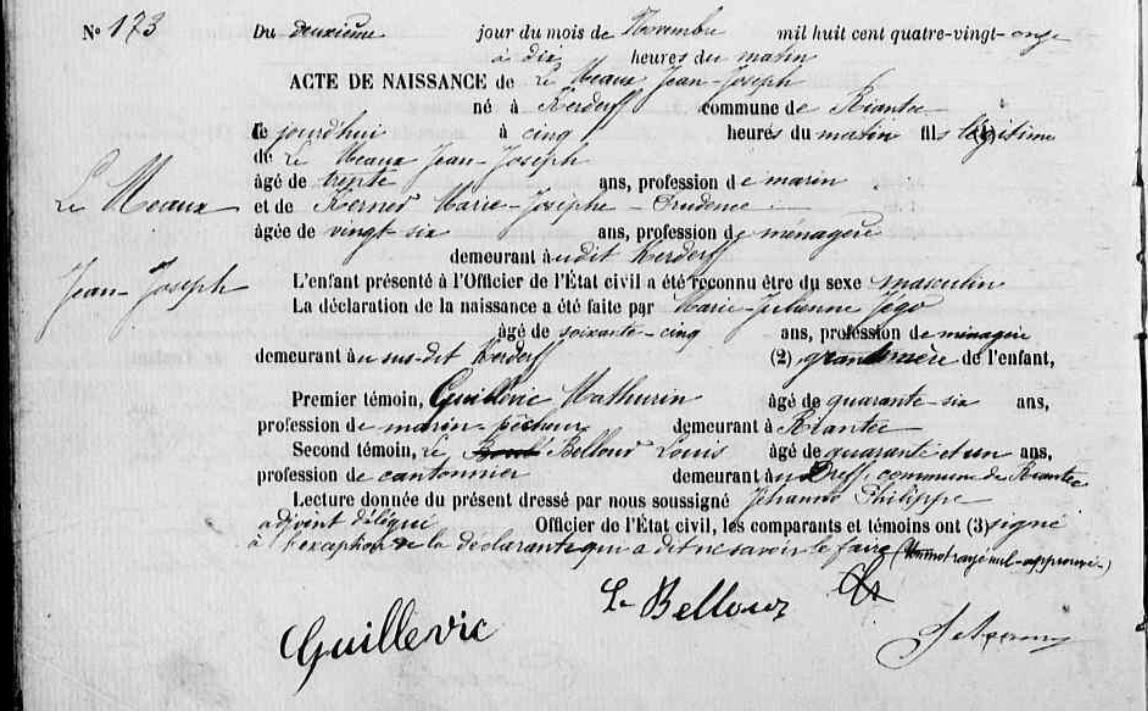 N° 173 Du deuxième jour du mois de Novembre mil huit cent quatre-vingt-onze
à dix heures du matin
ACTE DE NAISSANCE de Le Meaux Jean-Joseph
né à Kerderff commune de Riantec
ce jourd'hui à cinq heures du matin fils légitime
de Le Meaux Jean-Joseph
âgé de trente ans, profession de marin
Le Meaux
et de Kerner Marie-Josèphe-Prudence
âgée de vingt-six ans, profession de ménagère
demeurant audit Kerderff
Jean-Joseph
L'enfant présenté à l'Officier de l'État civil a été reconnu être du sexe masculin
La déclaration de la naissance a été faite par Marie-Julienne Jégo
âgé de soixante-cinq ans, profession de ménagère
demeurant au sus-dit Kerderff (2) grand'mère de l'enfant,
Premier témoin, Guillevic Mathurin âgé de quarante-six ans,
profession de marin-pêcheur demeurant à Riantec
Second témoin, Le Bellour Louis âgé de quarante et un ans,
profession de cantonnier demeurant au Dreff, commune de Riantec
Lecture donnée du présent dressé par nous soussigné Jehanno Philippe
adjoint délégué Officier de l'État civil, les comparants et témoins ont (3) signé
à l'exception de la déclarante qui a dit ne savoir le faire (Un mot rayé nul-approuvé-)
Le Bellour
Guillevic